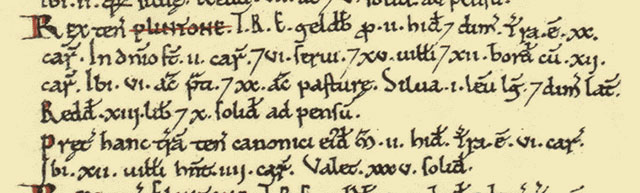 Rex ten̄ PLUNTONE. T.R.E. geldb̄ ꝓ.ii.hid̄.7 dim̄. Tr̄a.ē.xx.
car̄. In dn̄io st̄.ii.car̄.7 vi.serui.7 xv.uitti 7 xii.bord̄ cū.xii.
car̄. Ibi.vi.ac̄ p̄ti.7 xx.ac̄ pasturę. Silua.i.leū lḡ.7 dim̄ lat̄.
Redd̄.xiii.lib̄ 7 x.solid̄ ad pensū.
Pret̄ hanc tr̄a ten̄ canonici ei'd m̄.ii.hid̄. Tr̄a.ē.vi.car̄.
Ibi.xii.uitti hn̄t.iiii.car̄. Valet.xxxv.solid̄.